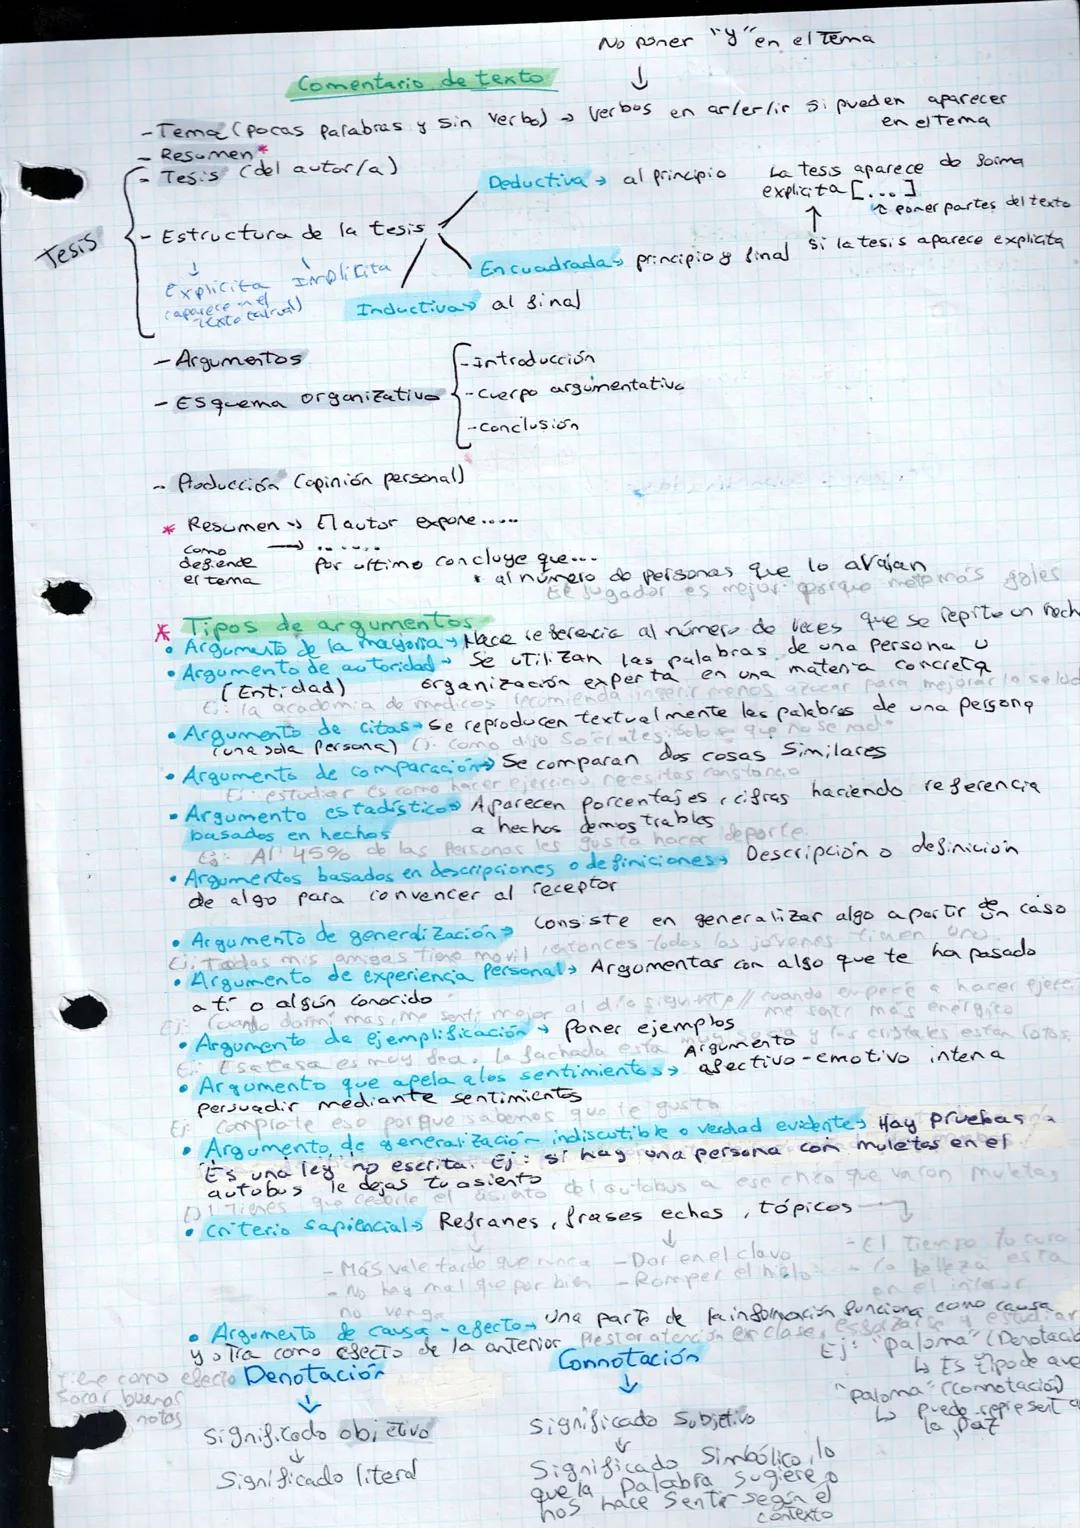 No poner "y" en el tema
↓
Comentario de texto
- Tema (pocas palabras y sin verbo) → Verbos en ar/er/ir si pueden aparecer en el tema
- Resumen*
Tesis
- Tesis (del autor/a)
Deductiva → al principio
La tesis aparece de forma explícita [...]
↑ poner partes del texto
- Estructura de la tesis
si la tesis aparece explicita
Encuadrada → principio y final
explicita
Implicita
(aparece en el texto
Inductiva → al final
- Argumentos
- Esquema organizativo
- introducción
- cuerpo argumentativo
- conclusión
- Producción (opinión personal)
* Resumen → El autor expone.....
como defiende el tema → ......
Por ultimo concluye que...
* al número de personas que lo avajan
El jugador es mejor porque mete más goles
* Tipos de argumentos
• Argumento de la mayoría → Hace referencia al número de veces que se repite un hech
• Argumento de autoridad → Se utilizan las palabras de una persona u
(Entidad) organización experta en una materia concreta
Ej: la academia de medicos recomienda ingerir menos azucar para mejorar la salud
• Argumento de citas → Se reproducen textualmente las palabras de una persona
(una sola persona) Ej: como dijo Socrates: Solo se que no se nada
• Argumento de comparación → Se comparan dos cosas similares
Ej: estudiar es como hacer ejercicio necesitas constancia
• Argumento estadísticos → Aparecen porcentajes, cifras haciendo referencia
basados en hechos a hechos demostrables
Ej: Al 45% de las personas les gusta hacer deporte.
• Argumentos basados en descripciones o definiciones → Descripción o definición
de algo para convencer al receptor
• Argumento de generalización → Consiste en generalizar algo a partir de un caso
Ej: Todas mis amigas tiene movil, entonces todos los jovenes tienen uno.
• Argumento de experiencia Personal → Argumentar con algo que te ha pasado
a ti o algún conocido
Ej: Cuando dormi mas, me senti mejor al dia siguiente // cuando empecé a hacer ejerc
me senti más energico
• Argumento de ejemplificación → poner ejemplos
Ej: Esa casa es muy fea. la fachada esta y los cristales están rotos.
• Argumento que apela a los sentimientos → Argumento afectivo-emotivo intena
persuadir mediante sentimientos
Ej: Comprate eso porque sabemos que te gusta
• Argumento de generalización indiscutible o verdad evidente → Hay pruebas
Es una ley no escrita. Ej: si hay una persona con muletas en el
autobus le dejas tu asiento
Ej: Tienes que cederle el asiento del autobus a ese chico que va con muletas
• Criterio sapiencial → Refranes, frases echas, tópicos
- Más vale tarde que nunca
- Dar en el clavo
- El tiempo lo cura
- No hay mal que por bien no venga
- Romper el hielo
- la belleza esta en el interior
• Argumento de causa-efecto → Una parte de la información funciona como causa
y otra como efecto de la anterior Prestar atención en clase, esforzarse y estudiar
tiene como efecto Sacar buenas notas
Ej: "Paloma" (Denotació
↳ Es tipo de ave
"Paloma" (connotación)
↳ puede representa
la paz
Denotación
↓
Significado objetivo
↓
Significado literal
Connotación
↓
Significado Subjetivo
↓
Significado Simbólico, lo
que la Palabra sugiere o
nos hace Sentir según el
contexto